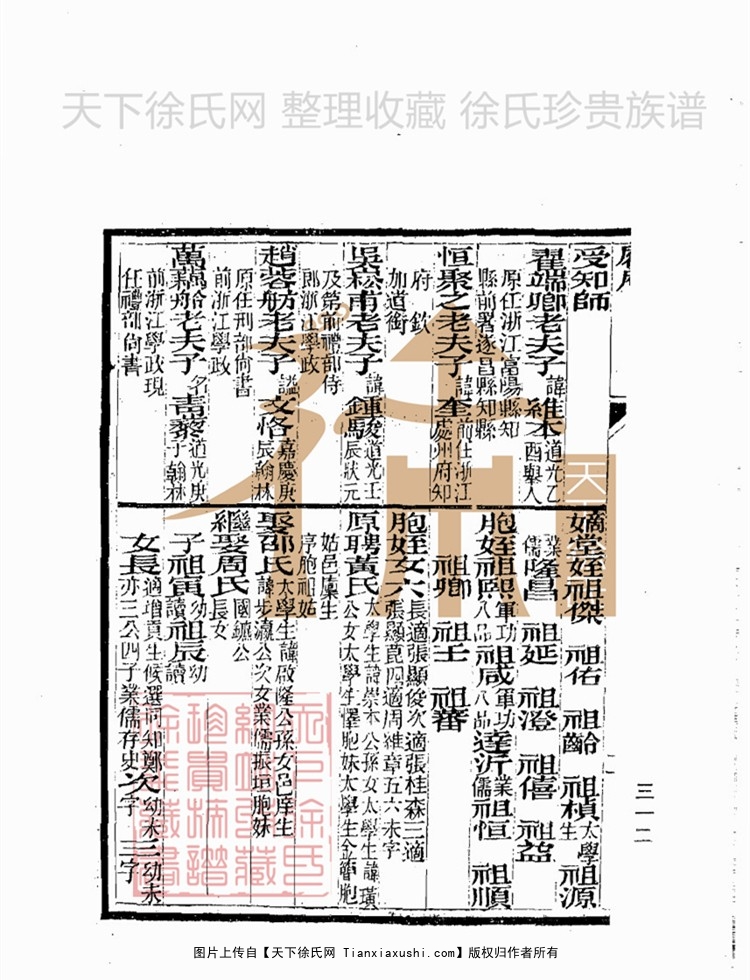 天下徐氏网 整理收藏 徐氏珍贵族谱
受知師
翟端卿老夫子 諱維本 道光乙酉舉人
原任浙江富陽縣知
縣前署遂昌縣知縣
恒聚之老夫子 諱奎 前任浙江處州府知
府 欽
加道銜
吳崧甫老夫子 諱鍾駿 道光壬辰狀元
及第前禮部侍
郎浙江學政
趙蓉舫老夫子 諡文恪 嘉慶庚辰翰林
原任刑部尚書
前浙江學政
萬藕舲老夫子 名青藜 道光庚子翰林
前浙江學政現
任禮部尚書
嫡堂姪祖傑 祖佑 祖齡 祖楨 太學生 祖源
業儒 隆昌 祖延 祖澄 祖僖 祖益
胞姪祖熙 軍功八品 祖咸 軍功八品 達沂 業儒 祖恒 祖順
祖卿 祖壬 祖蕃
胞姪女六 長適張顯俊次適張桂森三適
張顯菎四適周維章五六未字
原聘黃氏 太學生諱崇本公孫女太學生諱璜
公女太學生懌胞妹太學生金簪胞
姑邑廩生
序胞祖姑
娶邵氏 太學生諱啟隆公孫女邑庠生
諱步瀛公次女業儒振垣胞妹
繼娶周氏 國鑣公
長女
子祖寅 幼讀 祖辰 幼讀
女長 適增貢生候選同知鄭
亦三公四子業儒存史 次 幼未字 三 幼未字
三一二
天下徐氏
图片上传自【天下徐氏网 Tianxiaxushi.com】版权归作者所有